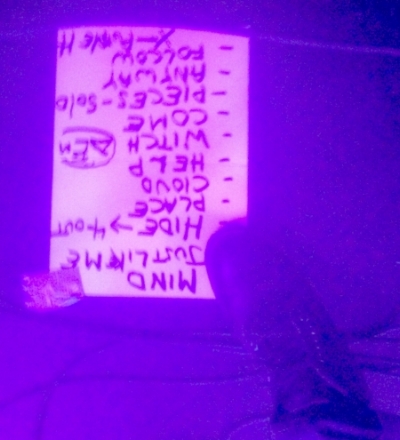 MIND
JUST LIKE ME
HIDE → 4 OUT
- PLACE
- CLOUD
- HELP
- WITCH
- COME
- PIECES - SOLO
- ANYWAY
- FOLLOW